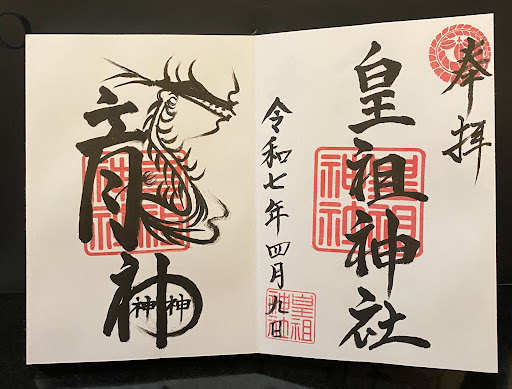 奉拝
皇祖神社
皇祖
神社
令和七年四月九日
皇祖
神社
龍神
神神
皇祖
神社